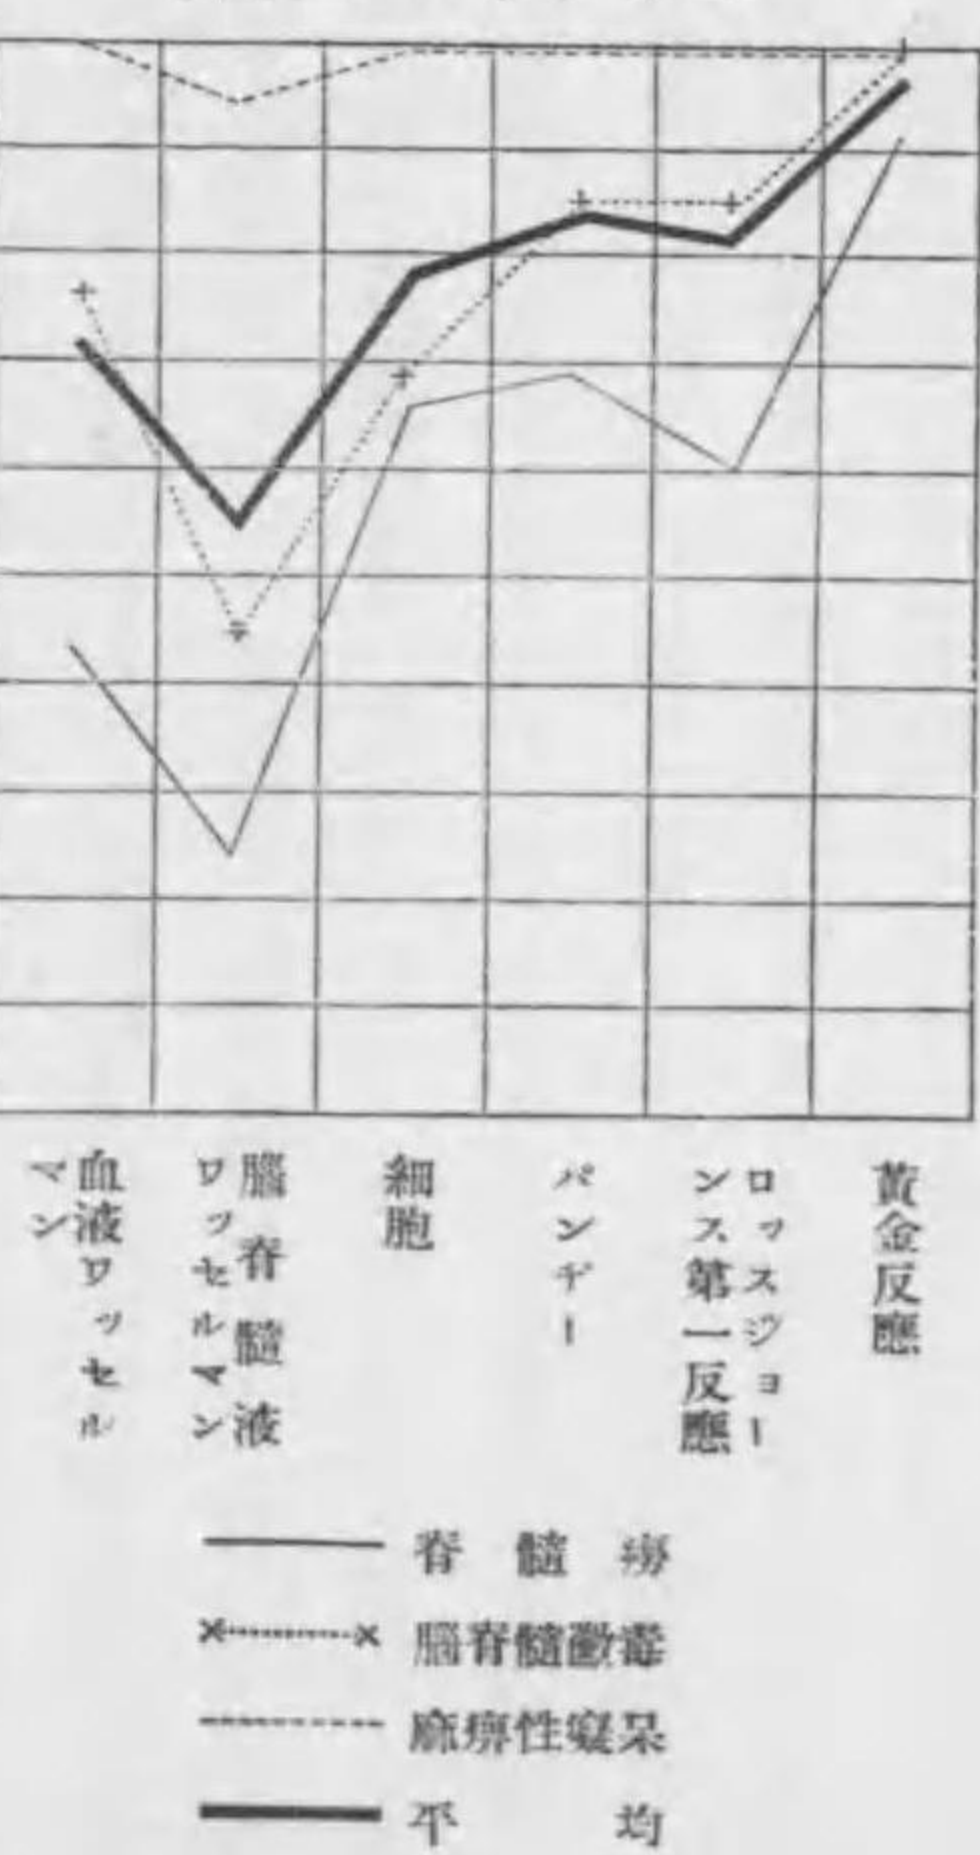 血液ワッセル
マン
腦脊髓液
ワッセルマン
細胞
パンヂー
ロッスジョー
ンス第一反應
黃金反應
脊髓癆
腦脊髓黴毒
麻痹性癡呆
平均